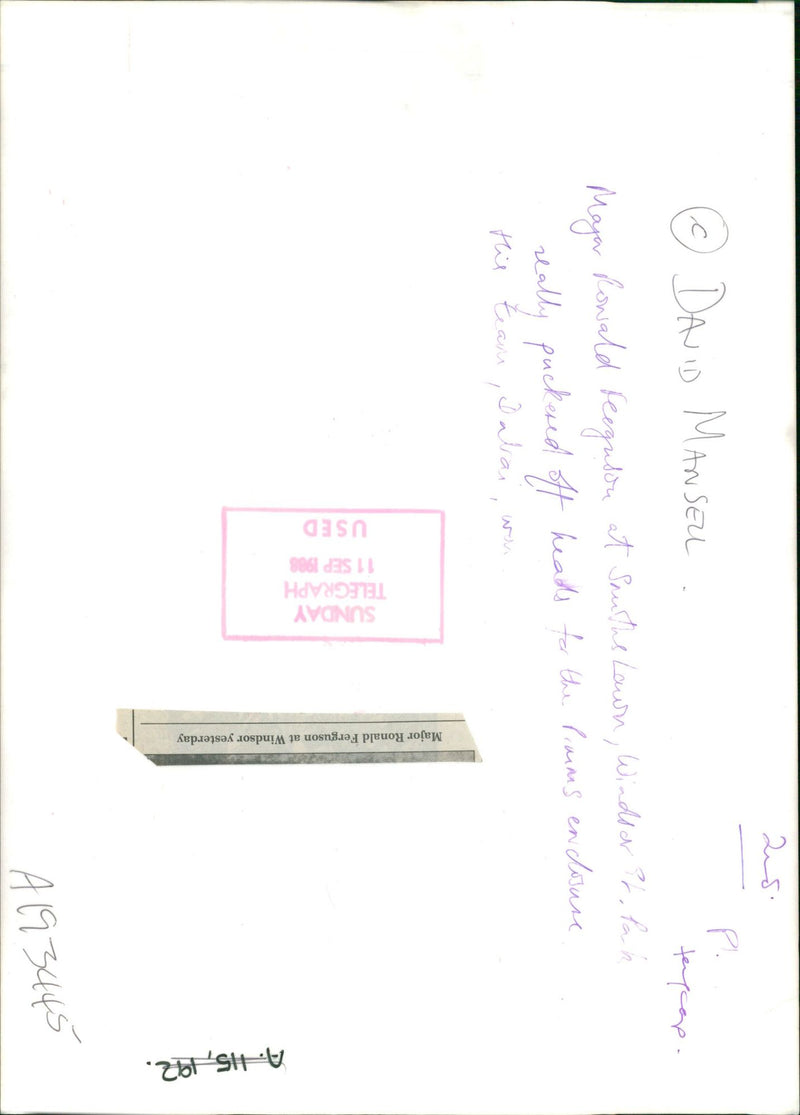 © DAVID MANSELL.
Major Ronald Ferguson at Smiths Lawn, Windsor Gt. Park
really puckered off heads for the Pimms enclosure.
His team, Dubai, won.
2nd.
P!
SUNDAY
TELEGRAPH
11 SEP 1988
USED
Major Ronald Ferguson at Windsor yesterday
A193445
A.115,192.